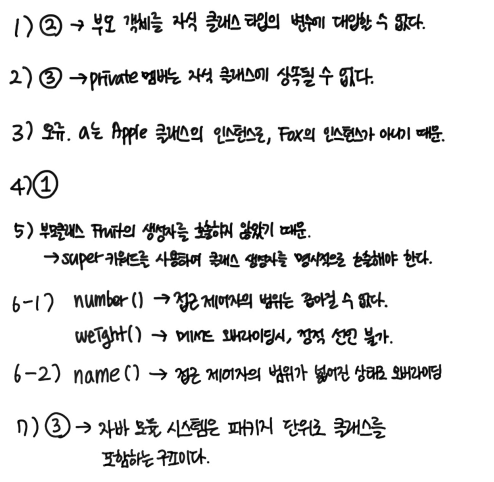 1) ② → 부모 객체를 자식 클래스 타입의 변수에 대입할 수 없다.
2) ③ → private 멤버는 자식 클래스에 상속될 수 없다.
3) 오류. a는 Apple 클래스의 인스턴스로, Fox의 인스턴스가 아니기 때문.
4) ①
5) 부모클래스 Fruit의 생성자를 호출하지 않았기 때문.
→ super 키워드를 사용하여 클래스 생성자를 명시적으로 호출해야 한다.
6-1) number() → 접근 제어자의 범위는 좁아질 수 없다.
weight() → 메서드 오버라이딩시, 정적 선언 불가.
6-2) name() → 접근 제어자의 범위가 넓어진 상태로 오버라이딩
7) ③ → 자바 모듈 시스템은 패키지 단위로 클래스를
포함하는 구조이다.